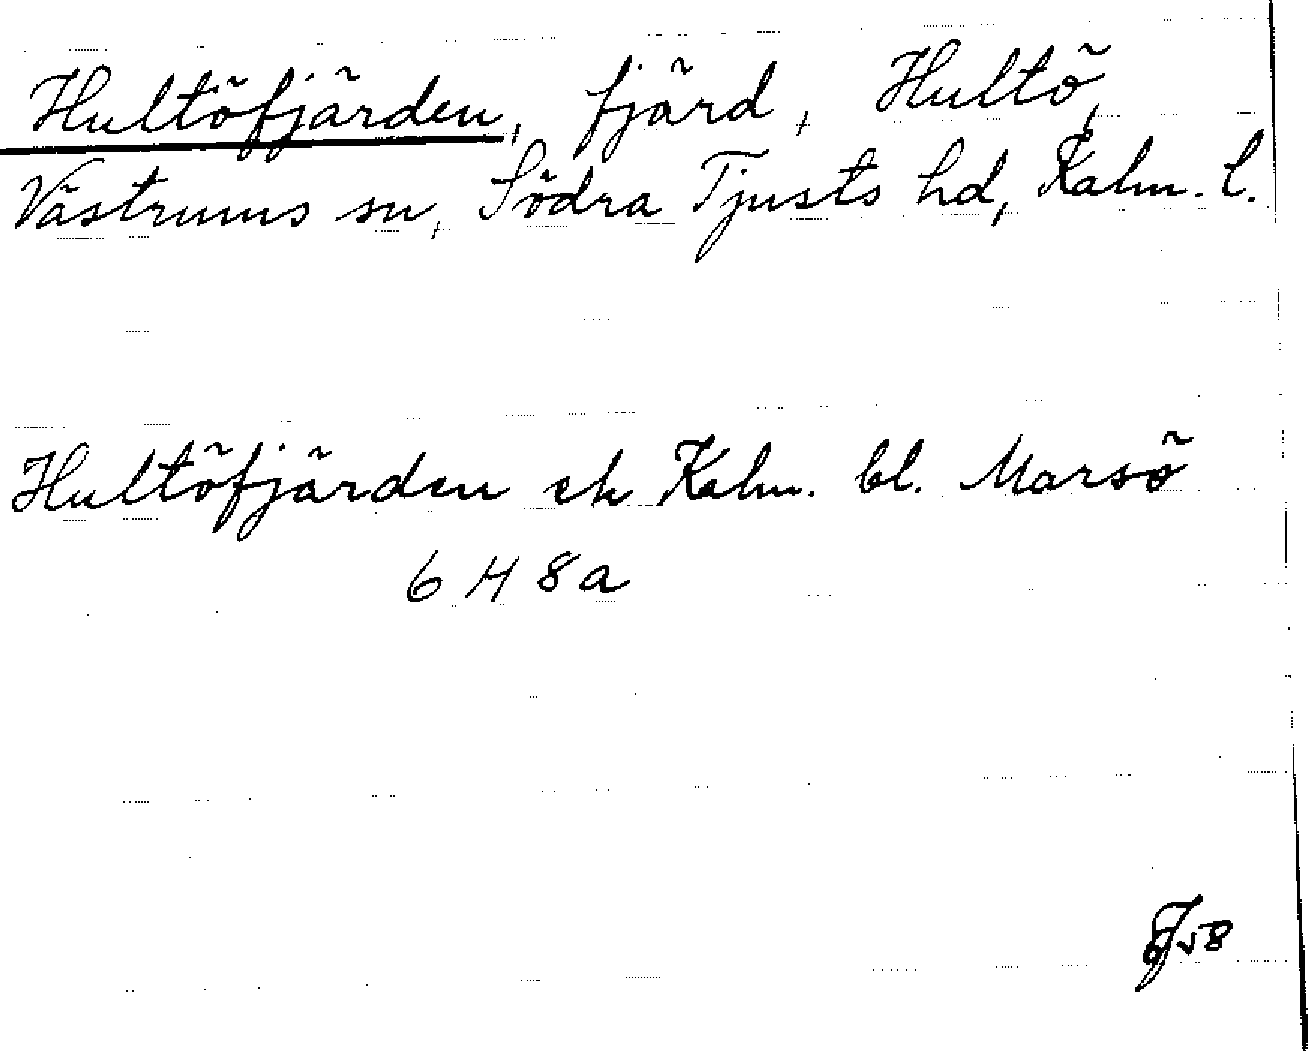 Hultöfjärden, fjärd, Hultö,
Västrums sn, Södra Tjusts hd, Kalm. l.
Hultöfjärden ek Kalm. bl. Marsö
6 H 8a
58